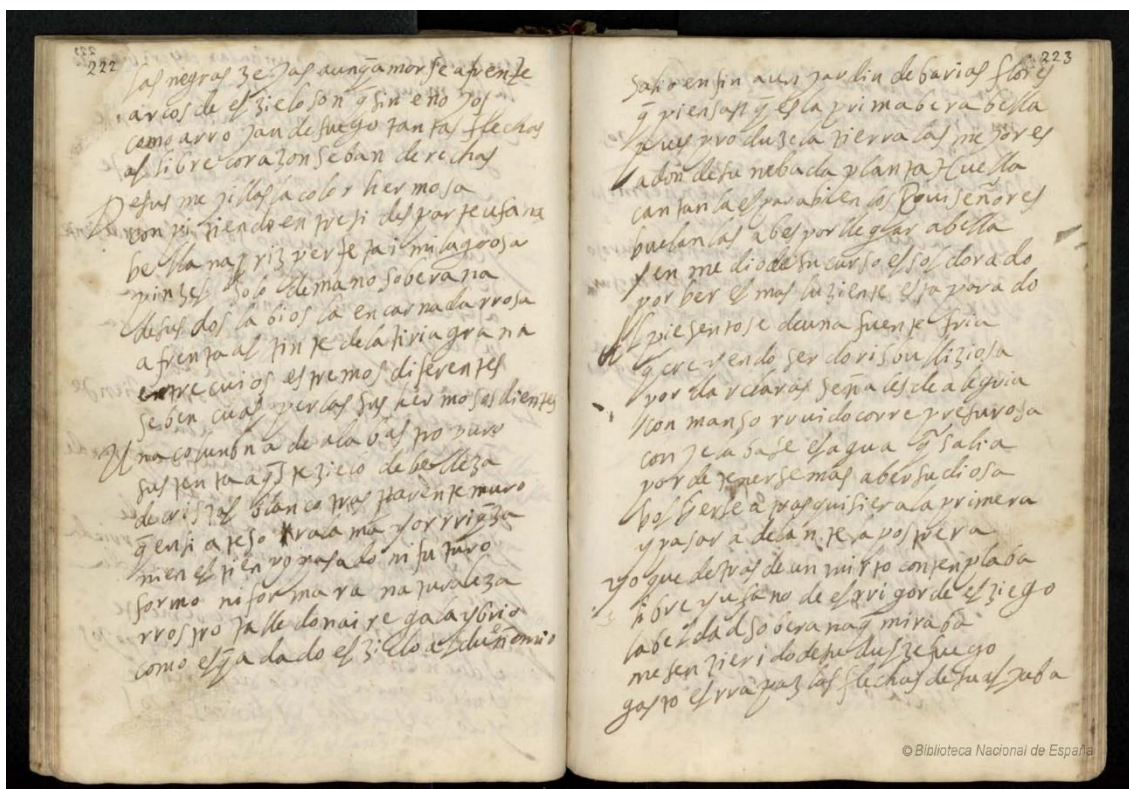 222
las negras zejas aunq̃ amor se afrente
arcos de el zielo son q̃ sin enojos
como arrojan de fuego tantas flechas
al libre corazon se ban derechas
De sus mejillas la color hermosa
conpitiendo entre si desparte ufana
bella nariz perfeta i milagrosa
pinzel solo de mano soberana
de sus dos labios la encarnada rrosa
afrenta al tinte de la tiria grana
entre cuios estremos diferentes
se ben cual perlas sus hermosos dientes
Una colunbna de alabastro puro
sustenta aq̃ste zielo de belleza
de cristal blanco trasparente muro
q̃ en si atesora ama y sorriq̃za
ni en el tienpo pasado ni futuro
formo no formara naturaleza
rrostro talle donaire gala y brio
como el q̃ a dado el ziello al dueño mio
223
Salio en fin a un jardin de barias flores
q̃ piensan q̃ es la primabera bella
pues produze la tierra las mejores
adonde su nebada planta huella
cantanla el parabien los Ruiseñores
buelan las abes por llegar a bella
y en medio de su curso el sol dorado
por ber el mas luziente esta parado
Al pie sentose de una fuente fria
q̃ creyendo ser doris ou diziosa
por dar claras señales de alegria
con manso rruido corre presurosa
conzelabase el agua q̃ salia
por detenerse mas a ber su diosa
bolberse atras quisiera la primera
y pasar adelante la postrera
Yo que detras de un mirto contenplaba
libre y ufano de el rrigor de el ziego
la beldad soberana q̃ miraba
me senti erido de su dulze fuego
gasto el rrapaz las flechas de su aljaba
© Biblioteca Nacional de España